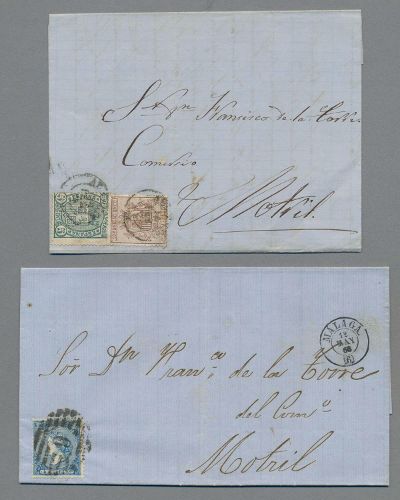 Sr Dn Francisco de la Torre
Comercio
Motril
MALAGA
12
MAY
66
(6)
Sõr Dn Franco de la Torre
del Como
Motril